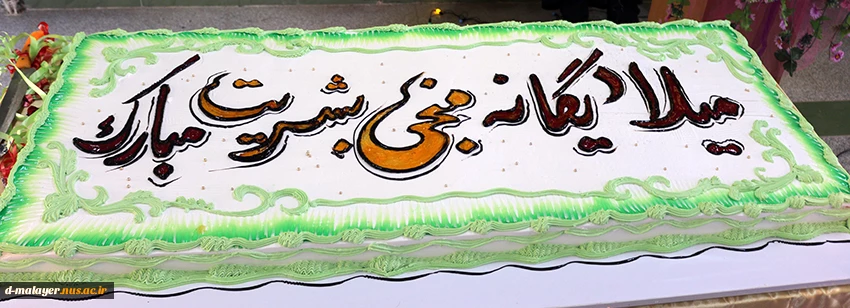 میلاد یگانه منجی بشریت مبارک
d-malayer.nus.ac.ir